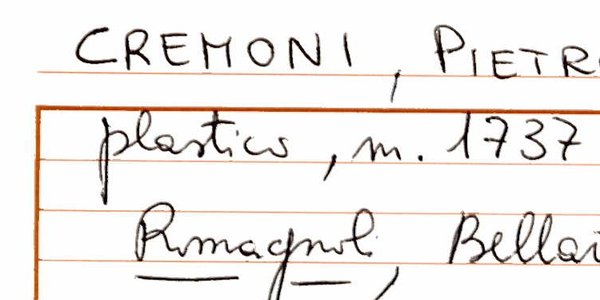 CREMONI, PIETR
plastico, m. 1737
Romagnoli, Bellar